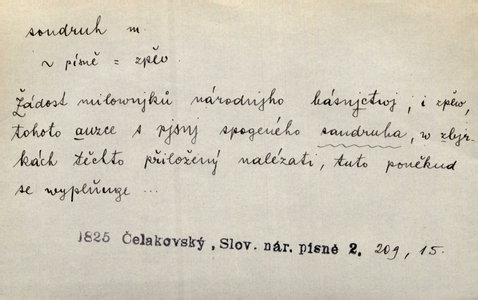 soudruh m.
~ písně = zpěv
Žádost milownjků národnjho básnjctwj, i zpěw,
tohoto auzce s pjsnj spogeného saudruha, w zbjr-
kách těchto přiložený nalézati, tuto poněkud
se wyplňuge ...
1825 Čelakovský, Slov. nár. písně 2. 209, 15.